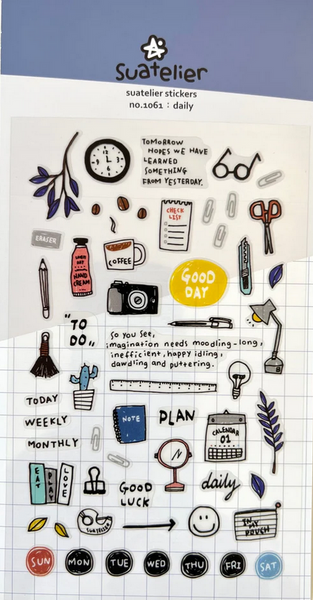 Suatelier
suatelier stickers
no.1061 : daily
TOMORROW
HOPES WE HAVE
LEARNED
SOMETHING
FROM YESTERDAY.
CHECK
LIST
ERASER
HAND CREAM
COFFEE
GOOD
DAY
"TO
DO"
So you see,
imagination needs moodling-long,
inefficient, happy idling,
dawdling and puttering.
TODAY
WEEKLY
MONTHLY
NOTE
PLAN
CALENDAR
01
EAT
PLAY
LOVE
GOOD
LUCK
daily
SUATELIER
IN
MY
SUN
MON
TUE
WED
THU
FRI
SAT